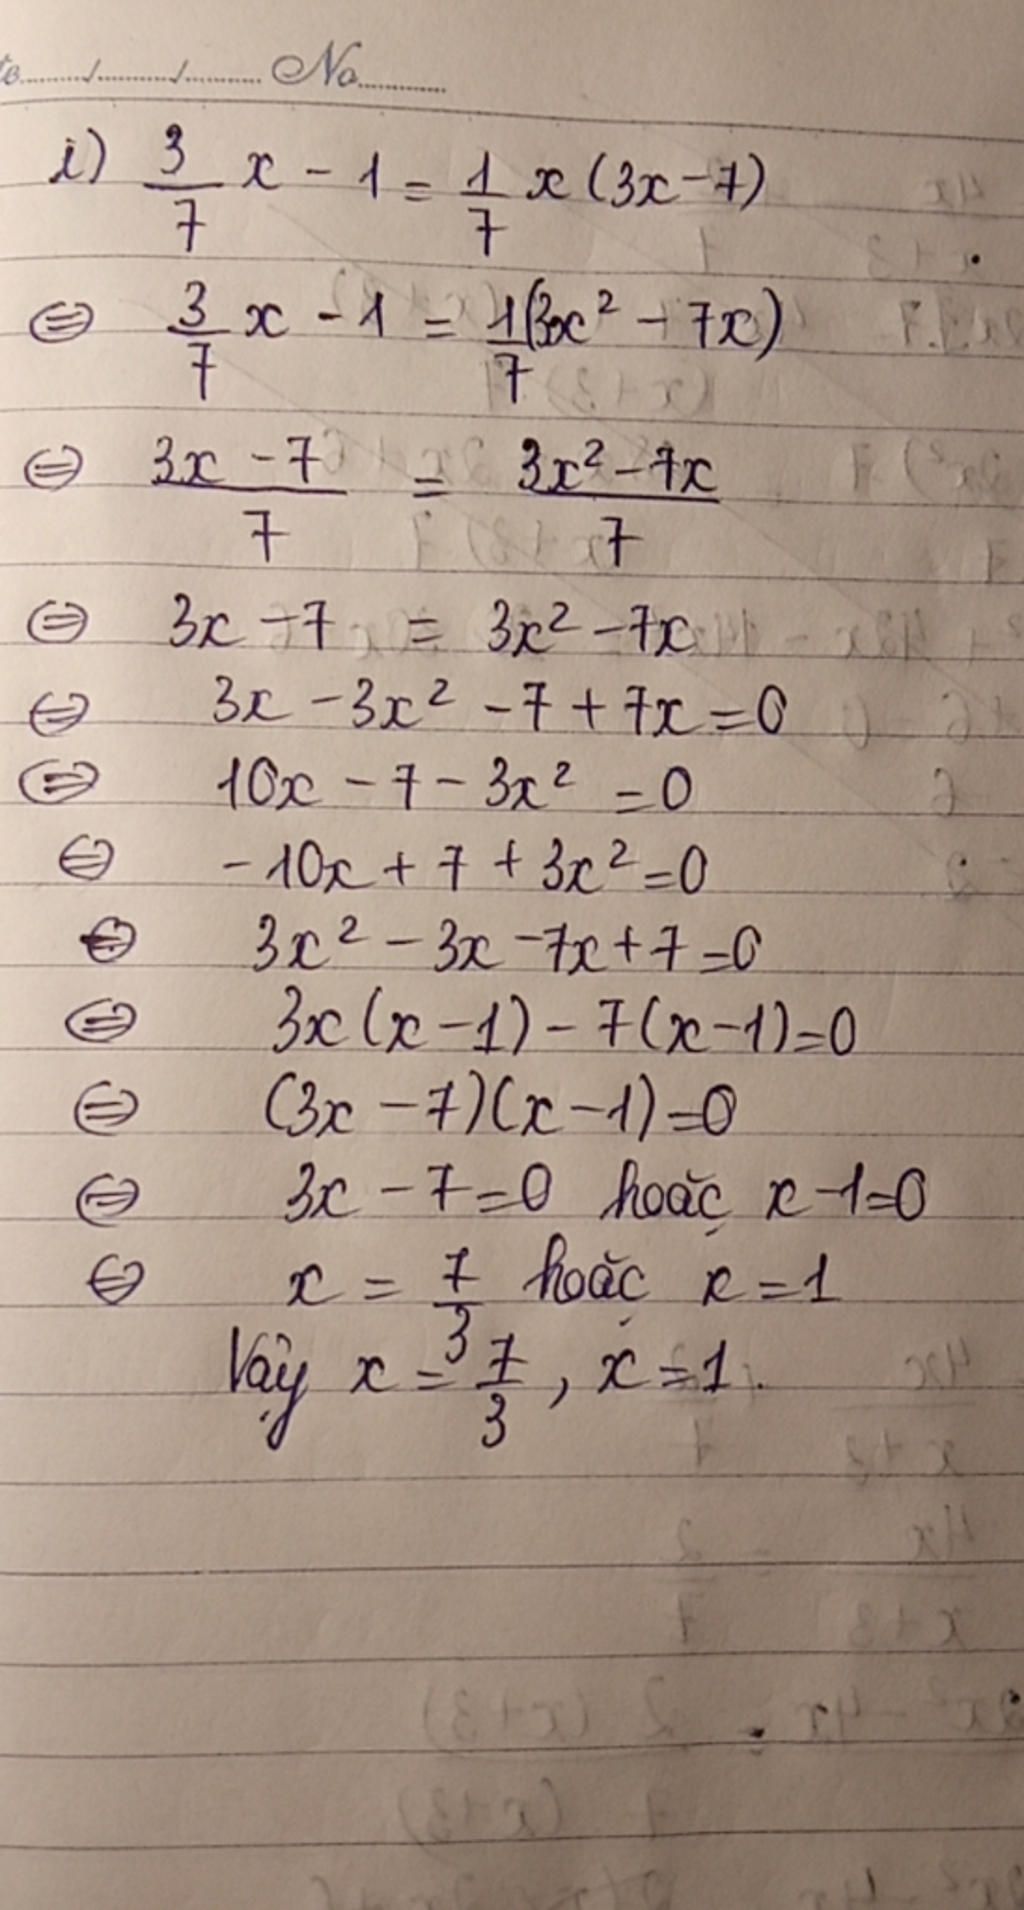 No
i) 3/7 x - 1 = 1/7 x (3x - 7)
⇔ 3/7 x - 1 = 1/7 (3x² - 7x)
⇔ (3x - 7)/7 = (3x² - 7x)/7
⇔ 3x - 7 = 3x² - 7x
⇔ 3x - 3x² - 7 + 7x = 0
⇔ 10x - 7 - 3x² = 0
⇔ -10x + 7 + 3x² = 0
⇔ 3x² - 3x - 7x + 7 = 0
⇔ 3x (x - 1) - 7 (x - 1) = 0
⇔ (3x - 7)(x - 1) = 0
⇔ 3x - 7 = 0 hoặc x - 1 = 0
⇔ x = 7/3 hoặc x = 1
Vậy x = 7/3, x = 1.